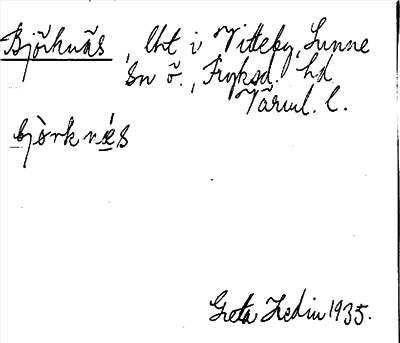 Björknäs, lht i Vitteby, Sunne
sn ö., Fryksd. hd
Värml. l.
bjò̀rknæ̀s
Greta Hedin 1935.